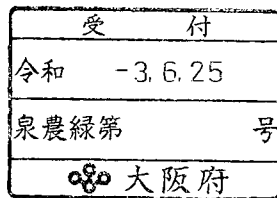 受 付
令和 -3.6.25
泉農緑第 号
大阪府